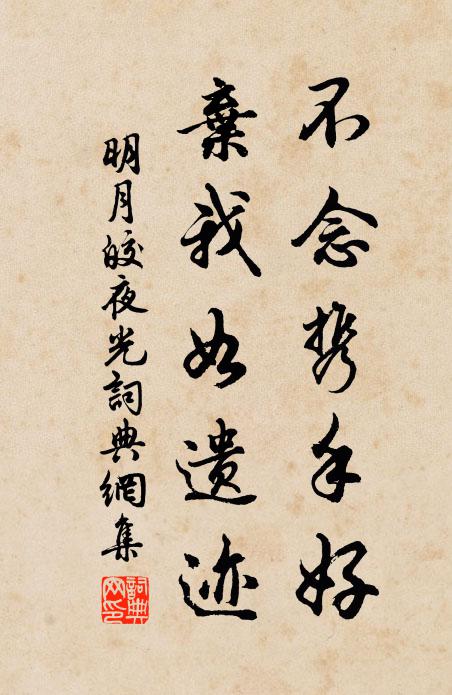 不念携手好
棄我如遺迹
明月皎夜光詞典網集